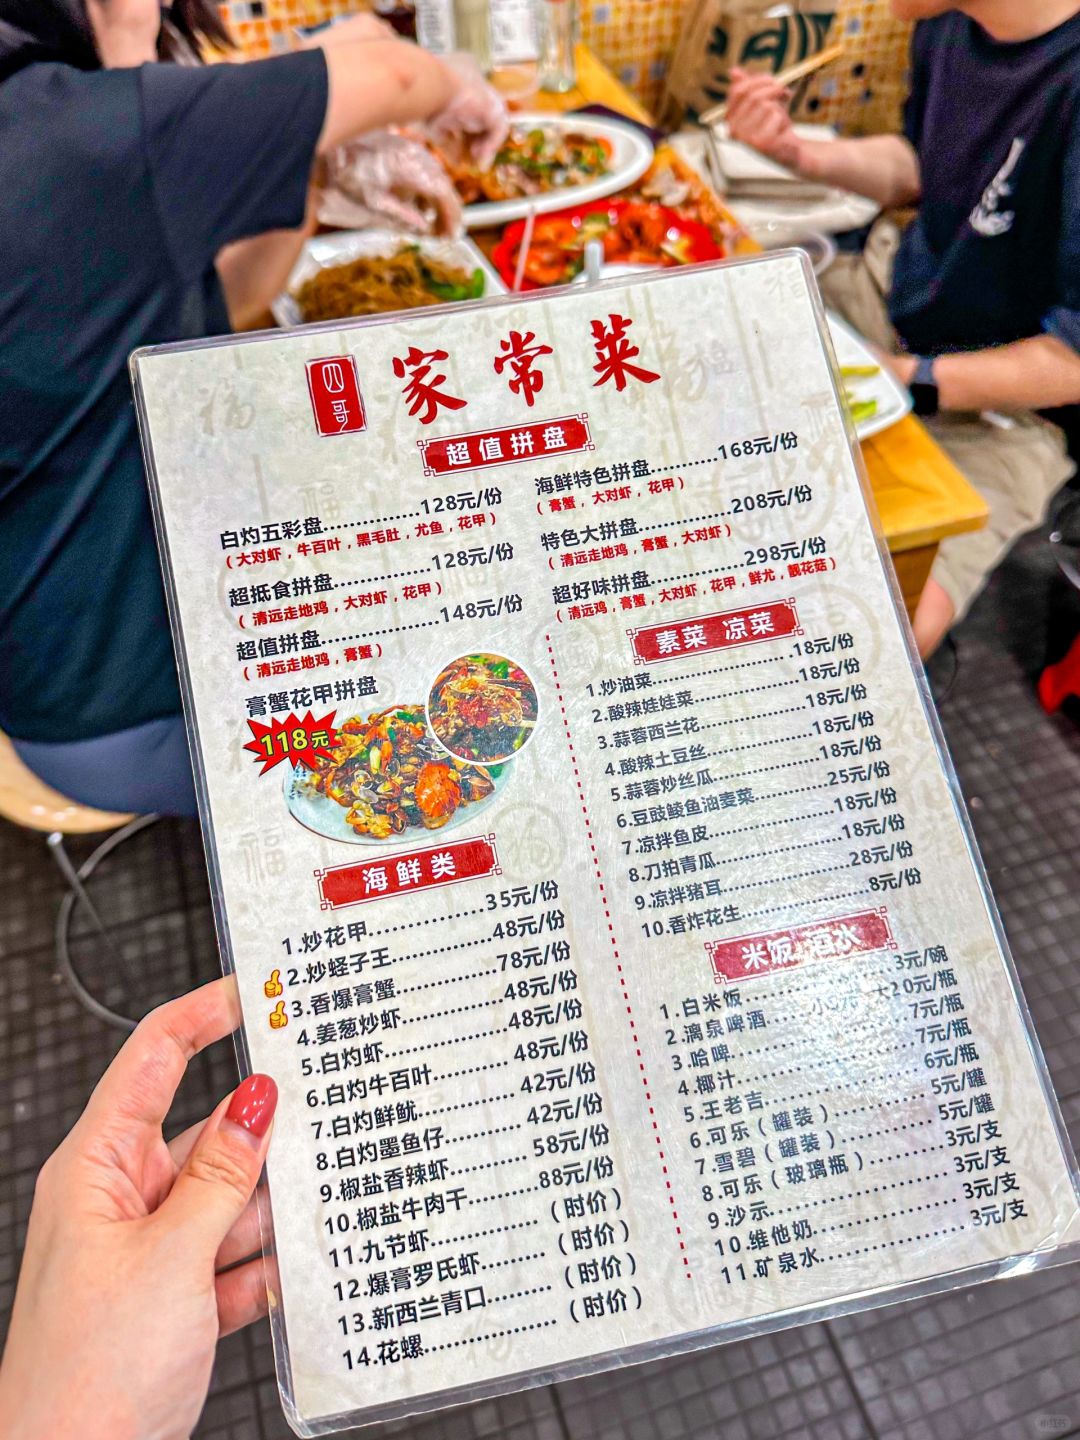 四哥
家常菜
超值拼盘
白灼五彩盘..............128元/份
（大对虾，牛百叶，黑毛肚，尤鱼，花甲）
超抵食拼盘..............128元/份
（清远走地鸡，大对虾，花甲）
超值拼盘.................148元/份
（清远走地鸡，膏蟹）
膏蟹花甲拼盘
118元
海鲜特色拼盘..........168元/份
（膏蟹，大对虾，花甲）
特色大拼盘..............208元/份
（清远走地鸡，膏蟹，大对虾）
超好味拼盘..............298元/份
（清远鸡，膏蟹，大对虾，花甲，鲜尤，靓花菇）
海鲜类
1.炒花甲..............35元/份
2.炒蛏子王............48元/份
3.香爆膏蟹............78元/份
4.姜葱炒虾............48元/份
5.白灼虾..............48元/份
6.白灼牛百叶..........48元/份
7.白灼鲜鱿............42元/份
8.白灼墨鱼仔..........42元/份
9.椒盐香辣虾..........58元/份
10.椒盐牛肉干..........88元/份
11.九节虾..............（时价）
12.爆膏罗氏虾........（时价）
13.新西兰青口.........（时价）
14.花螺.................（时价）
素菜 凉菜
1.炒油菜...................18元/份
2.酸辣娃娃菜...............18元/份
3.蒜蓉西兰花...............18元/份
4.酸辣土豆丝...............18元/份
5.蒜蓉炒丝瓜...............18元/份
6.豆豉鲮鱼油麦菜..........25元/份
7.凉拌鱼皮.................18元/份
8.刀拍青瓜.................18元/份
9.凉拌猪耳.................28元/份
10.香炸花生................8元/份
米饭 酒水
1.白米饭...................3元/碗
2.漓泉啤酒........大20元/瓶
3.哈啤.....................7元/瓶
4.椰汁.....................7元/瓶
5.王老吉...................6元/瓶
6.可乐（罐装）............5元/罐
7.雪碧（罐装）............5元/罐
8.可乐（玻璃瓶）..........3元/支
9.沙示.....................3元/支
10.维他奶..................3元/支
11.矿泉水..................3元/支